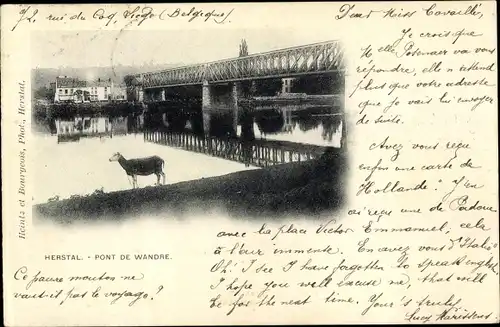 42 rue du Coq, Liège (Belgique)
Dear Miss Cavaillé,
Je crois que
Mr Posenaer va vous
répondre, elle n'attend
plus que votre adresse
que je vais lui envoyer
de suite.
Avez vous reçu
enfin une carte de
Hollande? J'en
ai reçu une de Padoue
avec la place Victor Emmanuel, cela
a l'air immense. En avez vous d'Italie
Oh! I see I have forgotten to speak english
I hope you will excuse me, that will
be for the next time. Your's truly,
Lucy
Reintz et Bourgeois, Phot., Herstal.
HERSTAL. - PONT DE WANDRE.
Ce pauvre mouton ne
vaut-il pas le voyage?